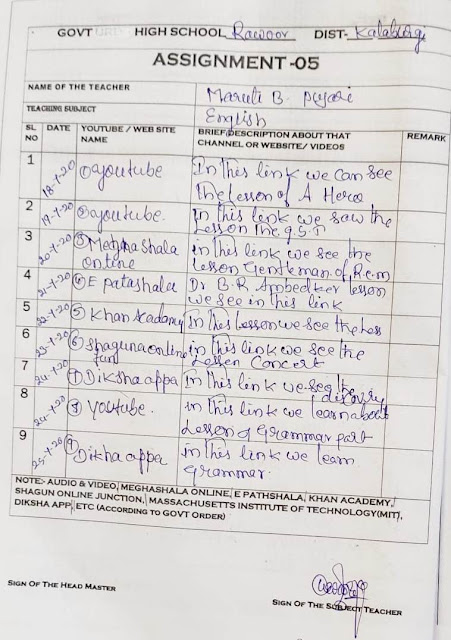 GOVT HIGH SCHOOL Rawoor DIST- Kalaburgi
ASSIGNMENT -05
NAME OF THE TEACHER Maruti B. pujari
TEACHING SUBJECT English
SL NO DATE YOUTUBE / WEB SITE NAME BRIEF DESCRIPTION ABOUT THAT CHANNEL OR WEBSITE/ VIDEOS REMARK
1 18-7-20 ① youtube In this link we can see
the lesson of A Hero
2 19-7-20 ② youtube. in this link we saw the
Lesson The G.S.T
3 20-7-20 ③ Meghashala in this link we see the
online lesson Gentleman of R.e.m
4 21-7-20 ④ E patashala Dr B.R Ambedker lesson
we see in this link
5 22-7-20 ⑤ Khan Acadamy In this Lesson we see the Less
6 23-7-20 ⑥ Shaguna online in this link we see the
Jun Lesson Concert
7 24-7-20 ⑦ Diksha appa in this link we see the
discovry
8 24-7-20 ⑧ youtube. in this link we learn about
Lesson of Grammar part
9 25-7-20 ⑨ Dikha appa in this link we learn
Grammar.
NOTE:- AUDIO & VIDEO, MEGHASHALA ONLINE, E PATHSHALA, KHAN ACADEMY,
SHAGUN ONLINE JUNCTION, MASSACHUSETTS INSTITUTE OF TECHNOLOGY(MIT),
DIKSHA APP, ETC (ACCORDING TO GOVT ORDER)
SIGN OF THE HEAD MASTER SIGN OF THE SUBJECT TEACHER